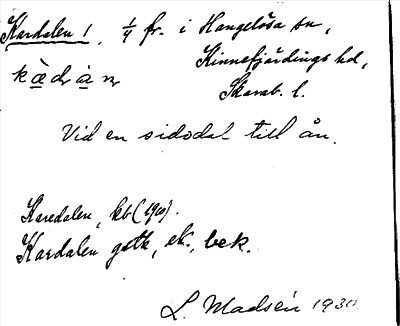 Kardalen 1, 1/4 fr. i Hangelösa sn,
Kinnefjärdings hd,
Skarab. l.
Vid en sidodal till ån.
Karedalen, kb (1900).
Kardalen gstk, ek., bek.
L. Madsén 1930.